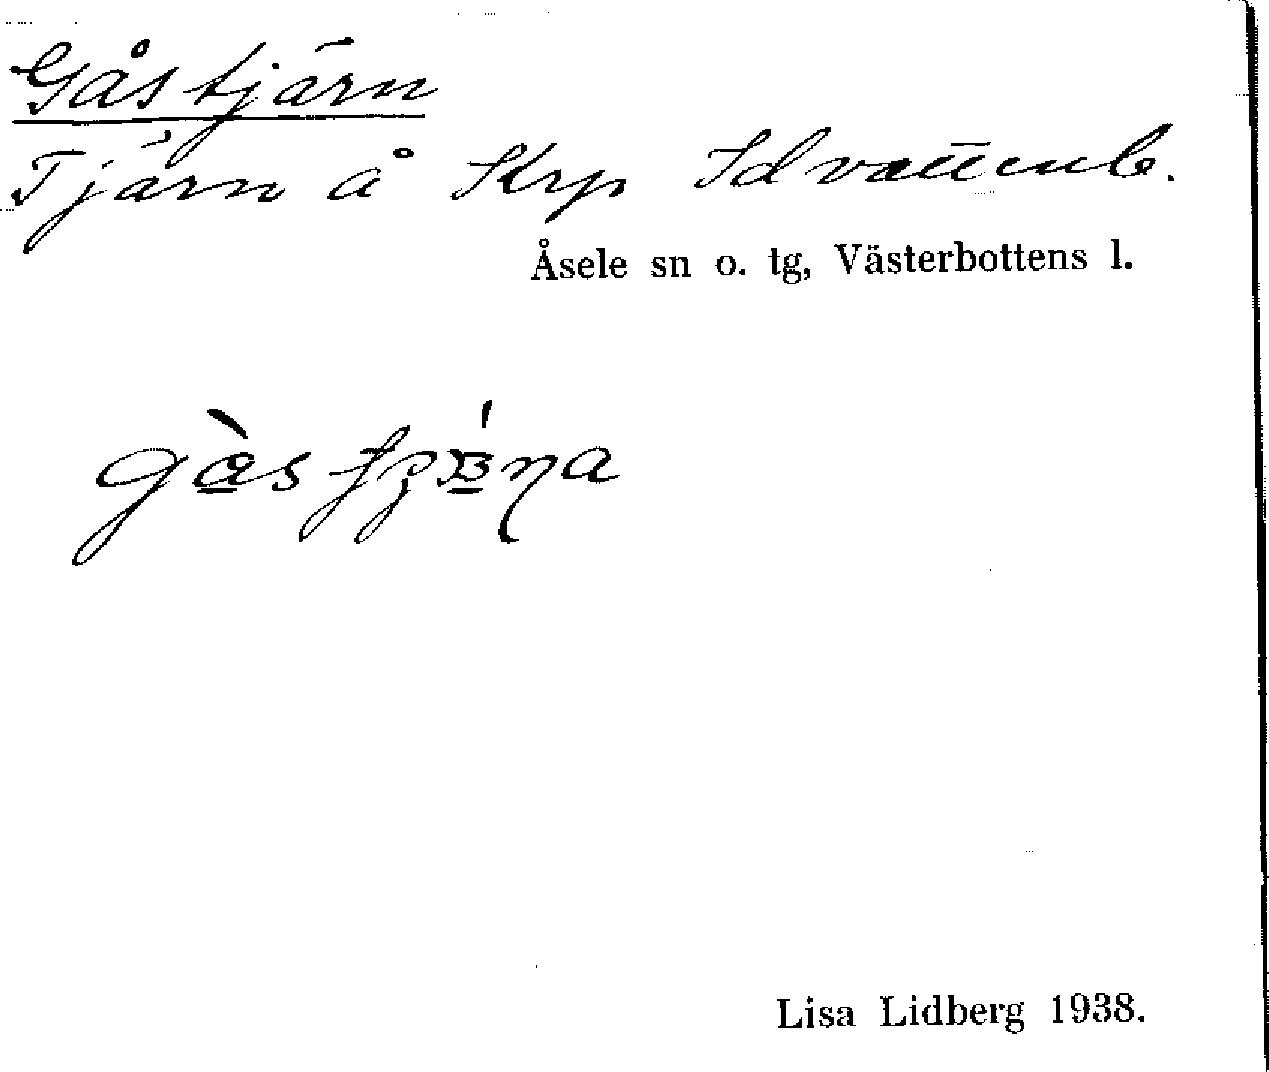 Gåstjärn
Tjärn å Krp Idvattenb.
Åsele sn o. tg, Västerbottens l.
Lisa Lidberg 1938.